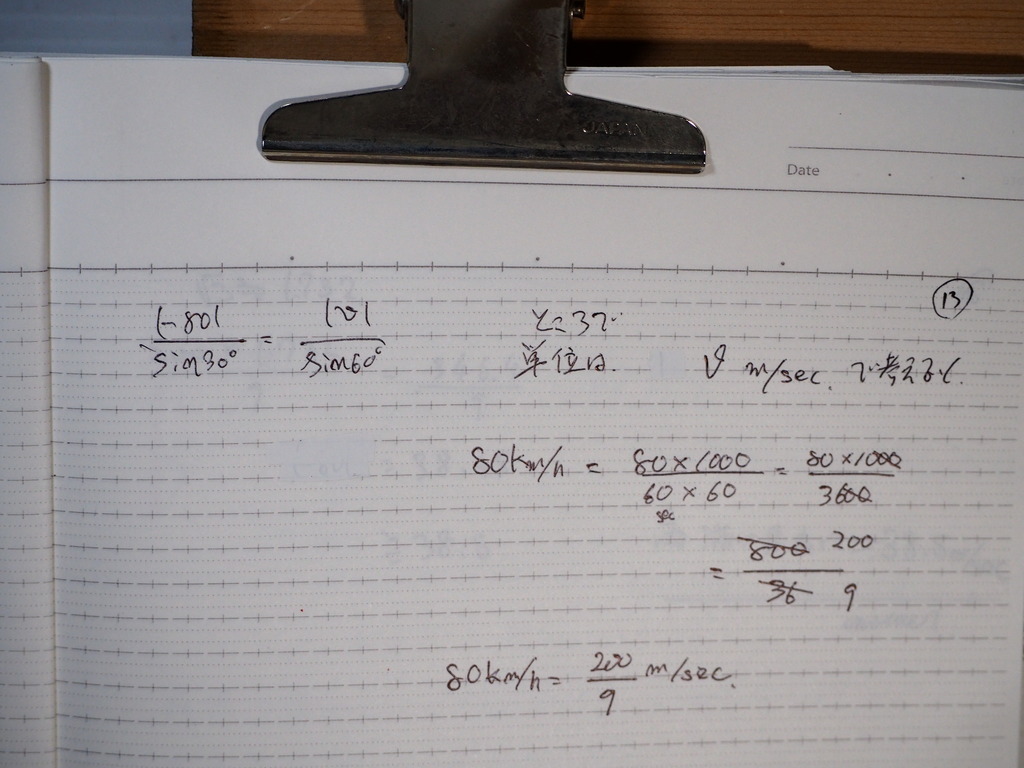 JAPAN
Date
13
|-80| / sin30° = |v| / sin60°
ところで
単位は v m/sec. で考えると
80km/h = 80×1000 / 60×60 = 80×1000 / 3600
sec
= 800 200 / 36 9
80km/h = 200 / 9 m/sec.